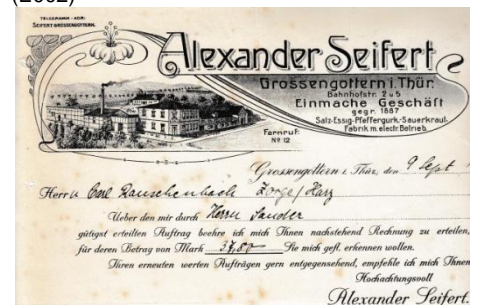 (2002)
TELEGRAMM-ADR:
SEIFERT GROSSENGOTTERN.
Alexander Seifert
Grossengottern i. Thür.
Bahnhofstr. 2 u 5
Einmache Geschäft
gegr. 1887
Salz-Essig-Pfeffergurk.-Sauerkraut-
Fabrik m. electr. Betrieb.
Fernruf:
No 12
Grossengottern i. Thür., den 9 Sept
Herrn Carl Rauschenbach Zorge/Harz
Ueber den mir durch Herrn Sander
gütigst erteilten Auftrag beehre ich mich Ihnen nachstehend Rechnung zu erteilen,
für deren Betrag von Mark 37,80 Sie mich gefl. erkennen wollen.
Ihren erneuten werten Aufträgen gern entgegensehend, empfehle ich mich Ihnen
Hochachtungsvoll
Alexander Seifert.